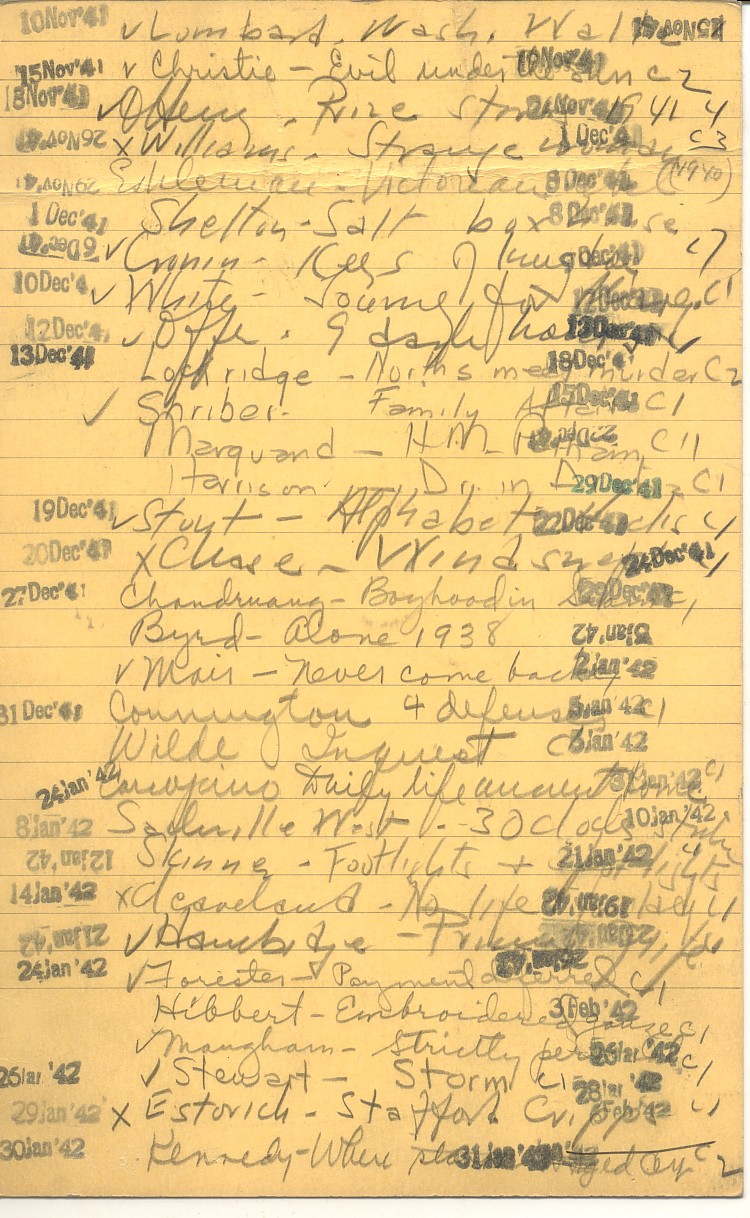 10Nov'41 v Lombard. Wash. Waltz 15Nov'41
15Nov'41 v Christie - Evil under the sun c2 19Nov'41
18Nov'41 v O Henry. Prize stories 1941 4 24Nov'41
26Nov'41 x Williams - Strange woman c3 1Dec'41
29Nov'41 Eshleman - Victorian (1940) 8Dec'41
1Dec'41 Shelton - Salt box house 8Dec'41
6Dec'41 v Cronin - Keys of kingdom c7 Dec'41
10Dec'4 v White - Journey for Marg. c1 12Dec'41
12Dec'4 v Offer. 9 13Dec'41
13Dec'41 Lockridge - Norths meet murder c2 18Dec'41
v Shriber - Family Affair c1 15Dec'41
Marquand - H.M. Pulham c11 22Dec'41
Harrison. Dr. in c1 29Dec'41
19Dec'41 v Stout - Alphabet Hicks c1 22Dec'41
20Dec'41 x Chase - Windswept c1 24Dec'41
27Dec'41 Chandruang - Boyhood in Siam c1 29Dec'41
Byrd - Alone 1938 5Jan'42
v Mair - Never come back 2Jan'42
31Dec'41 Connington 4 defenses c1 5Jan'42
Wilde Inquest c1 6Jan'42
24Jan'42 Carcopino Daily life ancient Rome c1 31Jan'42
8Jan'42 Sackville West - 30 clocks strike 10Jan'42
12Jan'42 Skinner - Footlights + spotlights c1 21Jan'42
14Jan'42 x Cleaveland - No life lady c1 19Jan'42
21Jan'42 v Hambidge - c1 21Jan'42
24Jan'42 v Forester - Payment deferred c1 Jan'42
Hibbert - Embroidered gauze c1 3Feb'42
v Maugham - Strictly personal c1 26Jan'42
26Jan'42 v Stewart - Storm c1 28Jan'42
29Jan'42 x Estorick - Stafford Cripps c1 Feb'42
30Jan'42 Kennedy - Where stands winged cy c2 31Jan'42